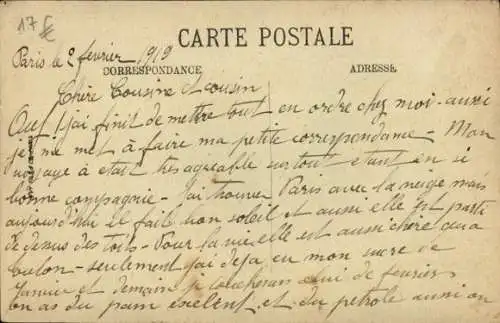 17 €
CARTE POSTALE
Paris le 2 février 1919
CORRESPONDANCE
ADRESSE
Chère Cousine et cousin
Ouf! j'ai finit de mettre tout en ordre chez moi - aussi
je me met à faire ma petite correspondance - Mon
voyage à était très agréable surtout etant en si
bonne compagnie - j'ai trouver Paris avec la neige mais
aujourd'hui il fait bon soleil et aussi elle est parti
de desus des toits - Pour la vie elle est aussi chère qua
Toulon - seulement j'ai deja eu mon sucre de
Janvier et demain je toucherais celui de fevrier
on as du pain exelent et du petrole aussi on